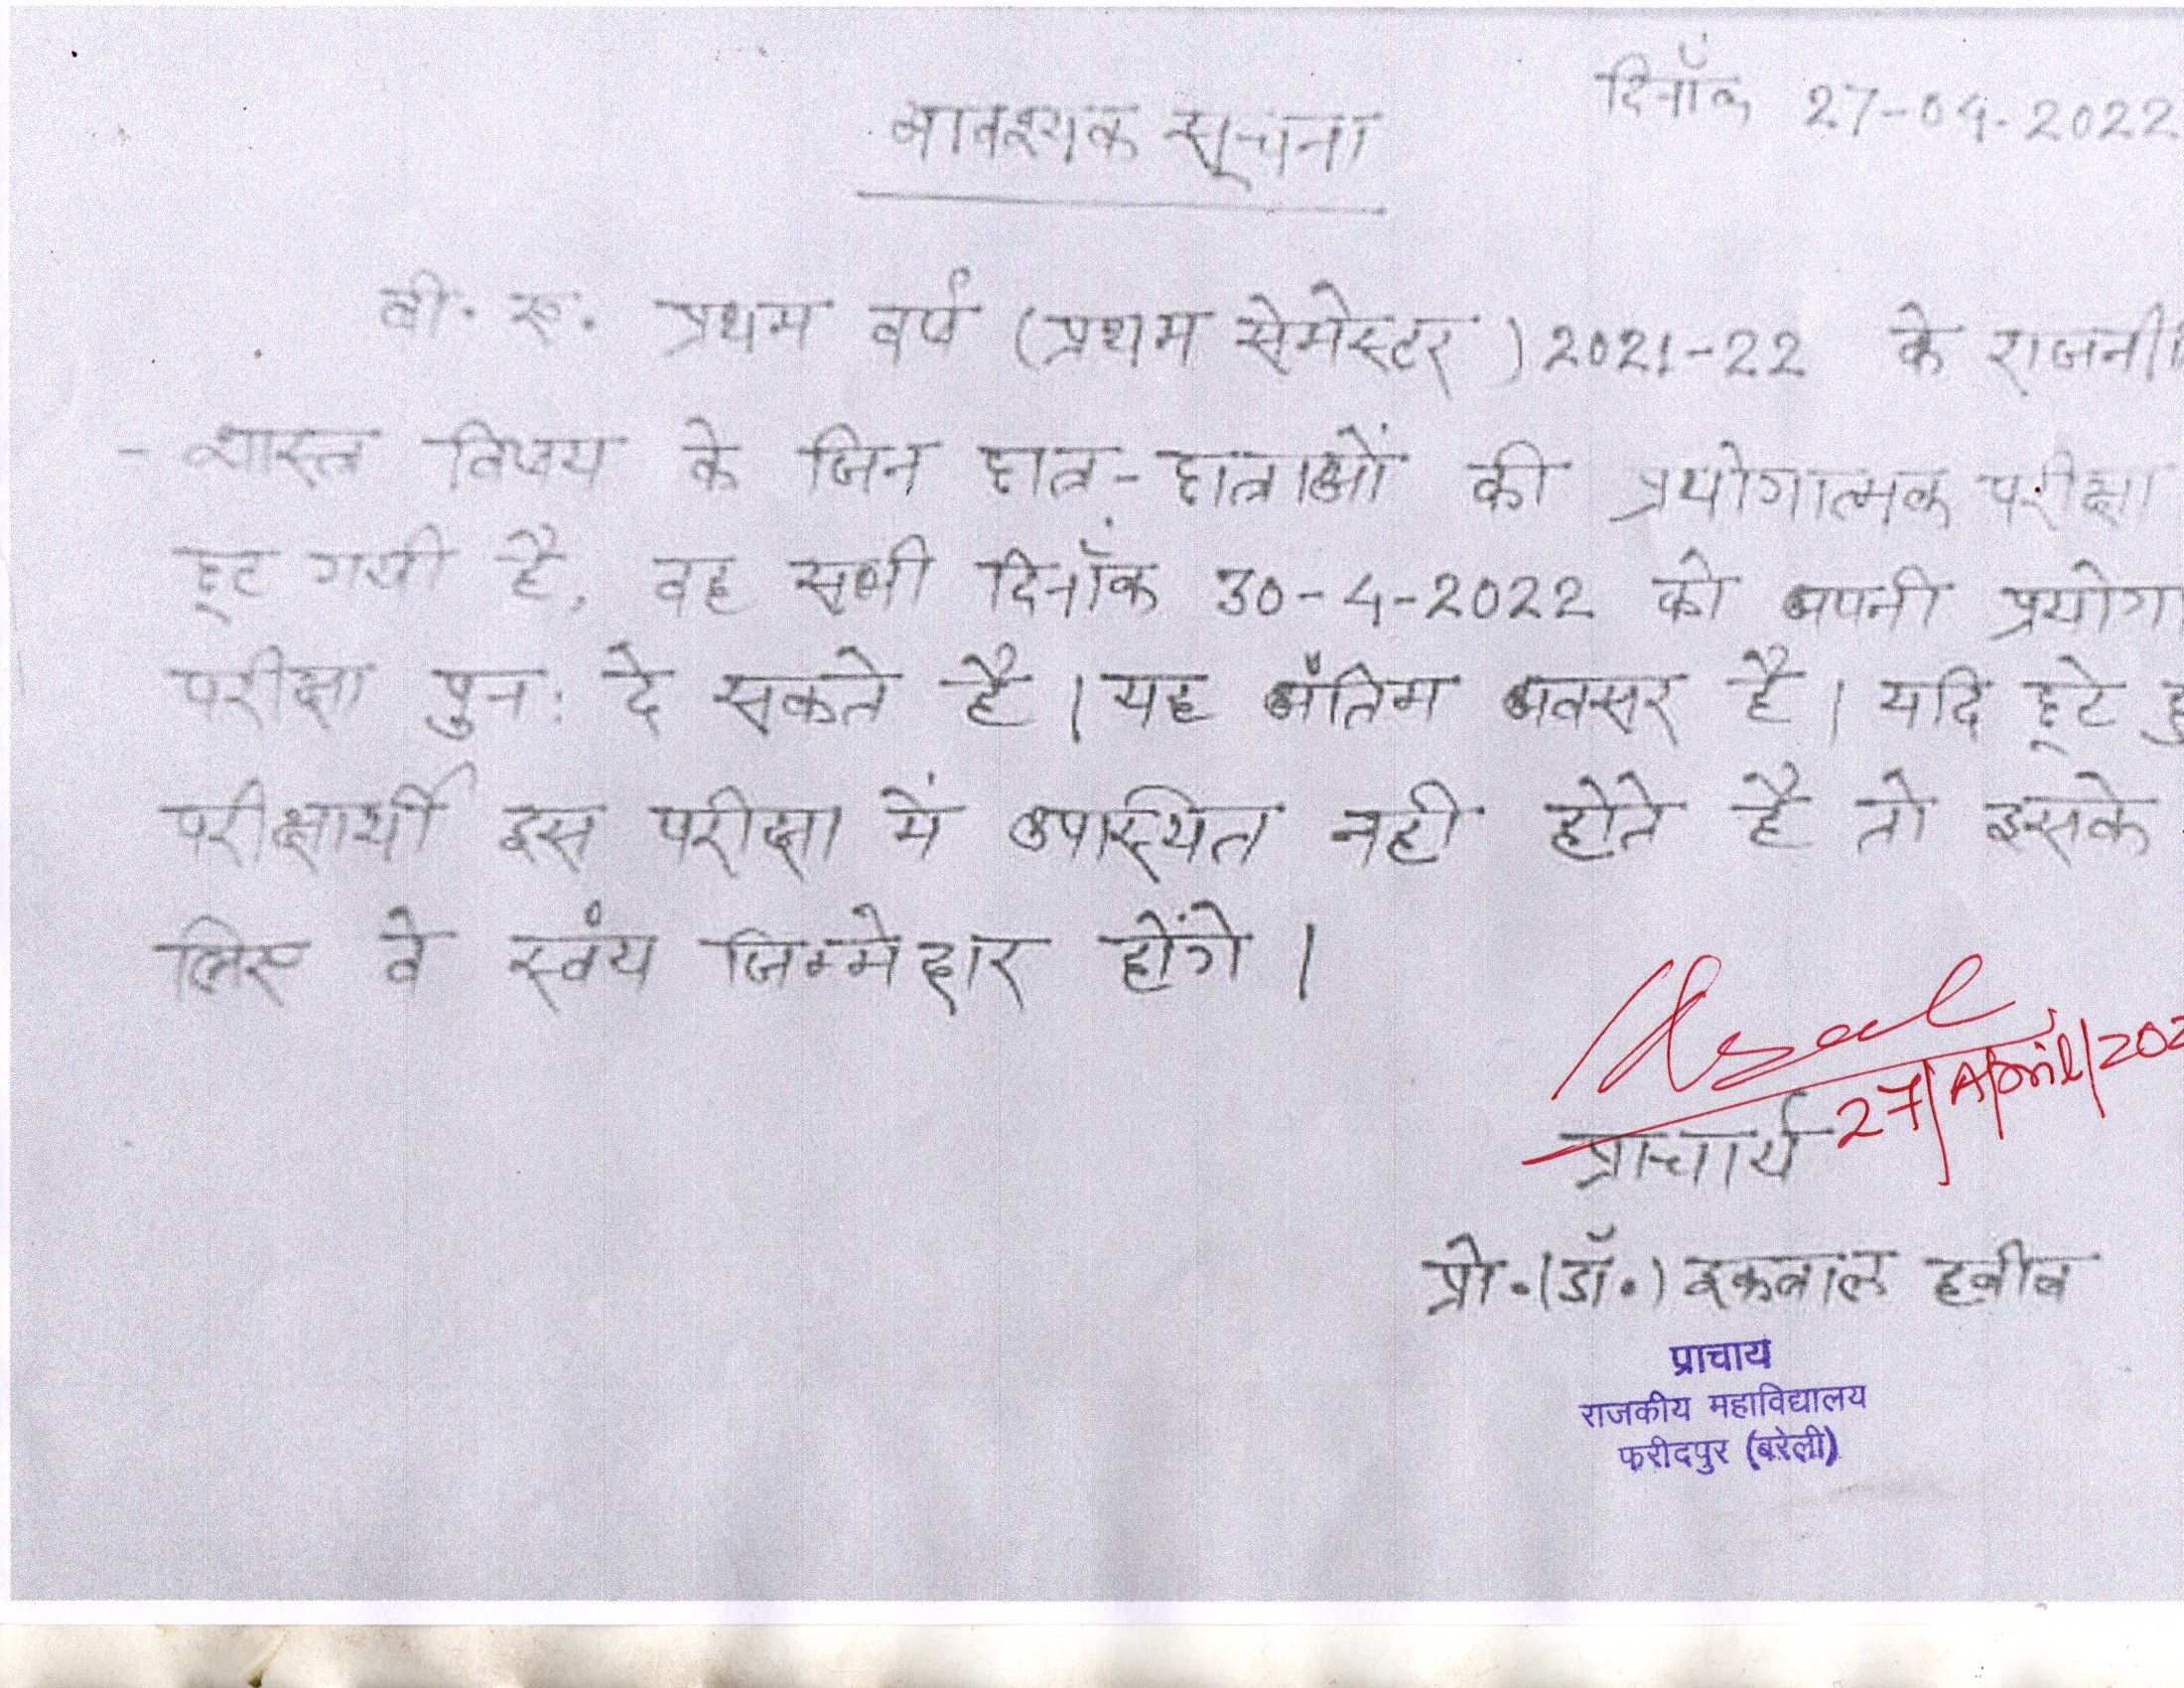 दिनाँक 27-04-2022
आवश्यक सूचना
बी. ए. प्रथम वर्ष (प्रथम सेमेस्टर) 2021-22 के राजनी
- शास्त्र विषय के जिन छात्र-छात्राओं की प्रयोगात्मक परीक्षा
छूट गयी है, वह सभी दिनाँक 30-4-2022 को अपनी प्रयोग
परीक्षा पुन: दे सकते है। यह अंतिम अवसर है। यदि छूटे हु
परीक्षार्थी इस परीक्षा में उपस्थित नही होते है तो इसके
लिए वे स्वंय जिम्मेदार होंगे।
27/April/202
प्राचार्य
प्रो.(डॉ.) इकबाल हबीब
प्राचाय
राजकीय महाविद्यालय
फरीदपुर (बरेली)